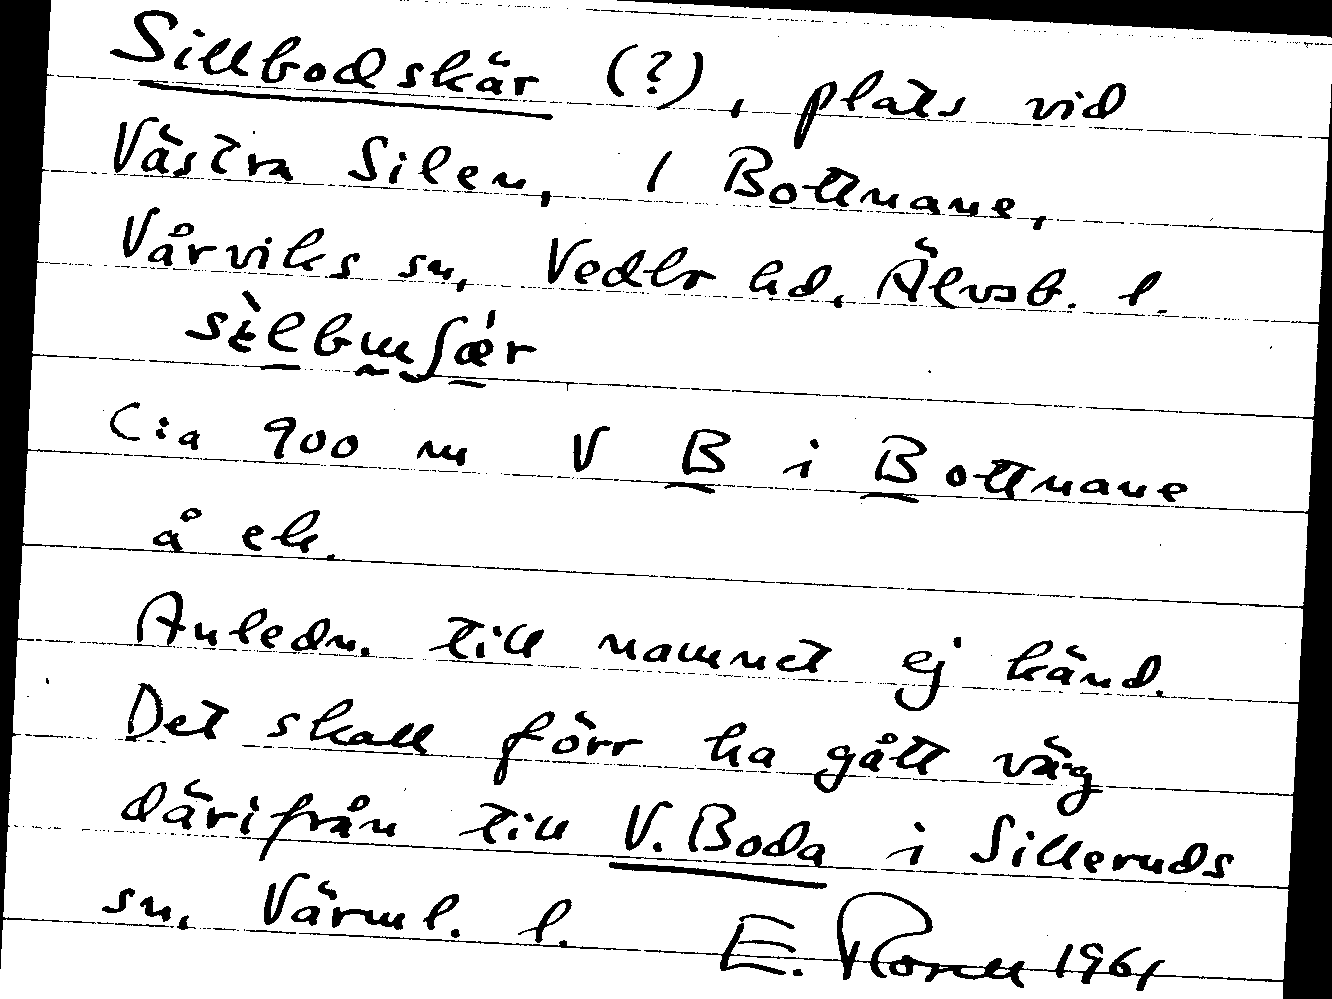 Sillbodskär (?), plats vid
Västra Silen, 1 Bottnane,
Vårviks sn, Vedbo hd, Älvsb. l.
C:a 900 m V B i Bottnane
å ek.
Anledn. till namnet ej känd.
Det skall förr ha gått väg
därifrån till V. Boda i Silleruds
sn, Värml. l. E. Rosell 1961